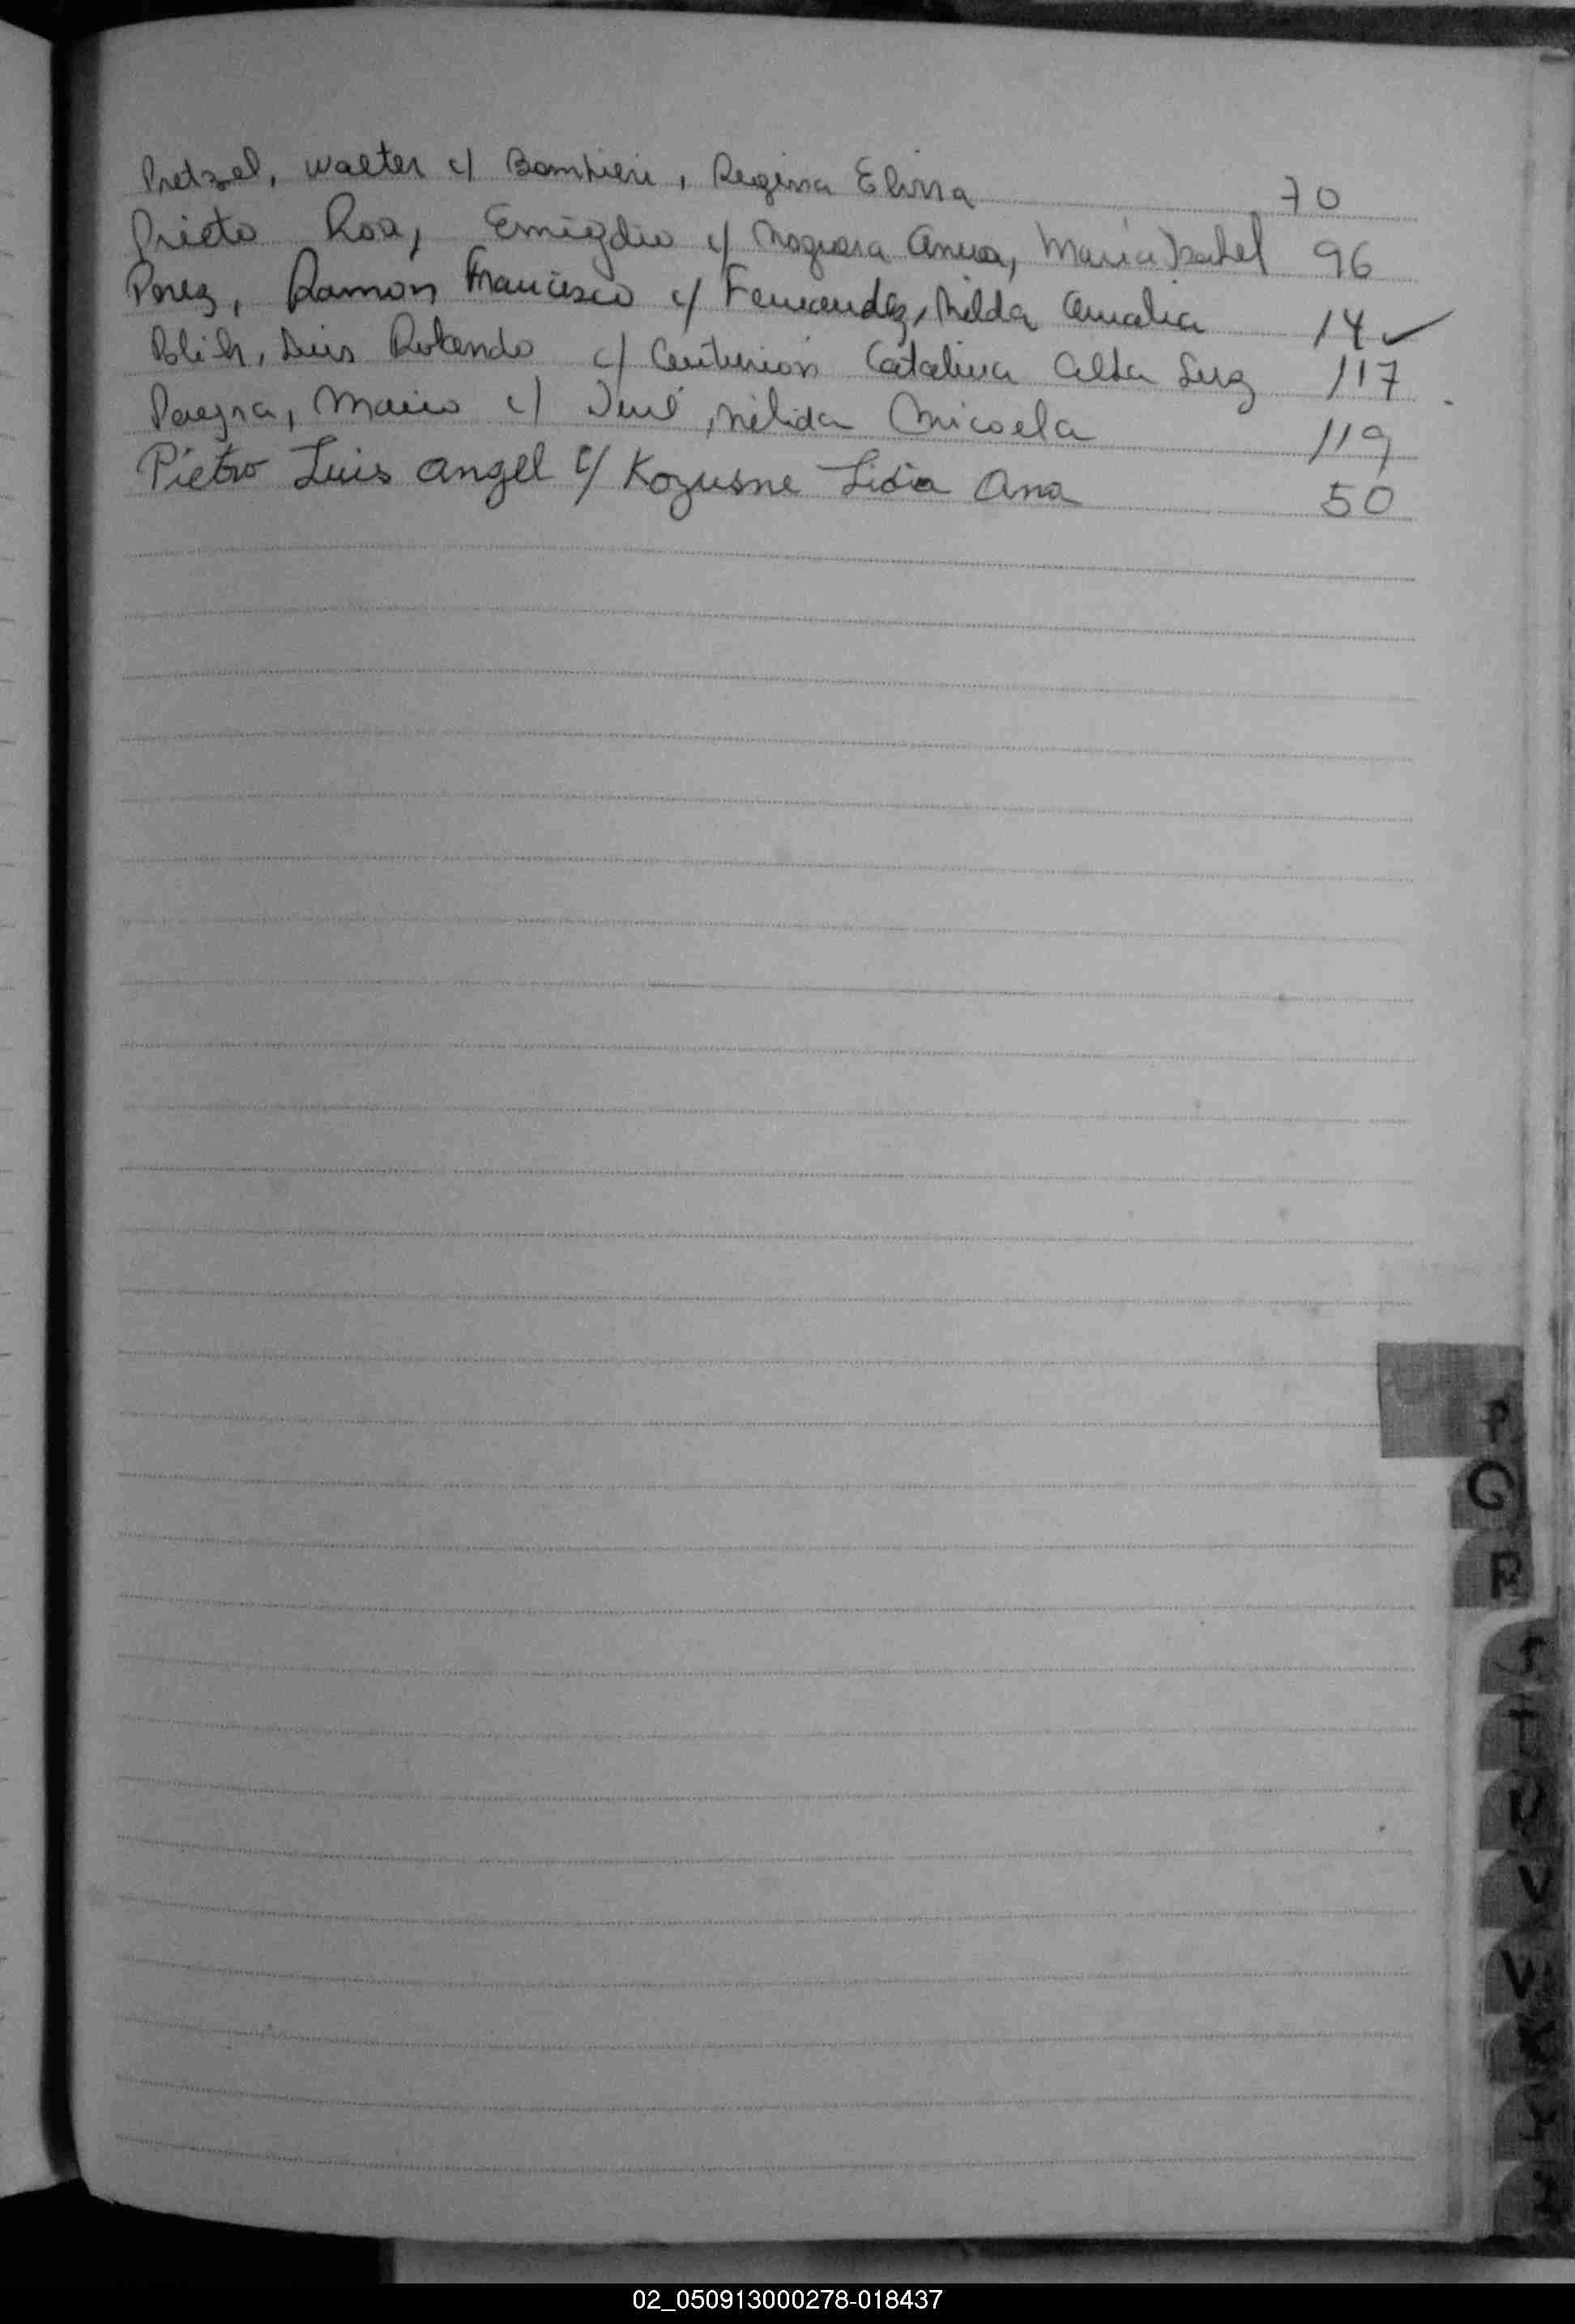 Pretzel, Walter c/ Bombieri, Regina Elina 70
Prieto Roa, Emigdio c/ Noguera María Isabel 96
Perez, Ramón Francisco c/ Fernandez, Nilda Amalia 14 ✓
Luis Rolando c/ Centurión Catalina Alba Luz 117
Mario c/ Nélida Micaela 119
Pietro Luis Angel c/ Kozusne Lidia Ana 50
P
Q
R
S
T
U
V
W
X
Y
Z
02_050913000278-018437